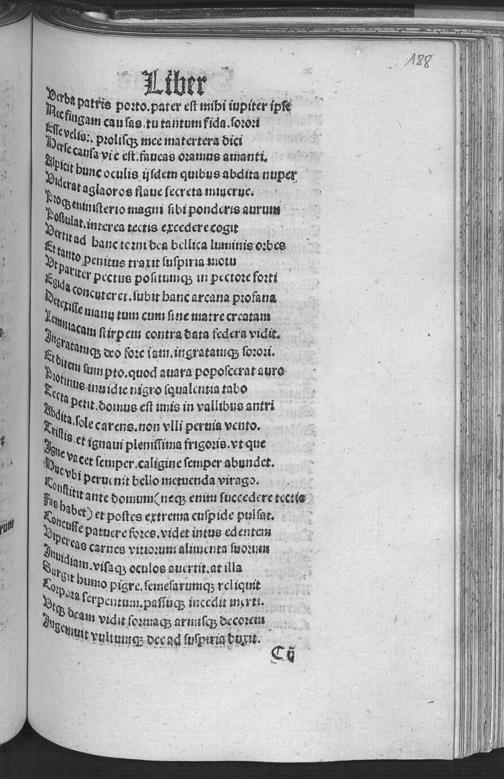 188
Liber
Verba patris porto. pater est mihi iupiter ipse
Nec fingam causas. tu tantum fida. sorori
Esse velis: prolisq; mee matertera dici
Herse causa vie est: faueas oramus amanti.
Aspicit hunc oculis ijsdem quibus abdita nuper
Viderat aglaoros flaue secreta minerue.
Proq; ministerio magni sibi ponderis aurum
Postulat. interea tectis excedere cogit
Vertit ad hanc torui dea bellica luminis orbes
Et tanto penitus traxit suspiria motu
Vt pariter pectus positumq; in pectore forti
Egida concuteret. subit hanc arcana profana
Detexisse manu tum cum sine matre creatam
Lemniacam stirpem contra data federa vidit.
Ingratamq; deo fore iam. ingratamq; sorori.
Et ditem sumpto. quod auara poposcerat auro
Protinus inuidie nigro squalentia tabo
Tecta petit. domus est imis in vallibus antri
Abdita. sole carens. non vlli peruia vento.
Tristis. et ignaui plenissima frigoris. vt que
Igne vacet semper. caligine semper abundet.
Huc vbi peruenit bello metuenda virago.
Constitit ante domum (neq; enim succedere tectis
Fas habet) et postes extrema cuspide pulsat.
Concusse patuere fores. videt intus edentem
Vipereas carnes vitiorum alimenta suorum
Inuidiam. visaq; oculos auertit. at illa
Surgit humo pigre. semesarumq; reliquit
Corpora serpentum. passuq; incedit inerti.
Vtq; deam vidit formaq; armisq; decorem
Ingemuit vultumq; dee ad suspiria duxit.
C ij